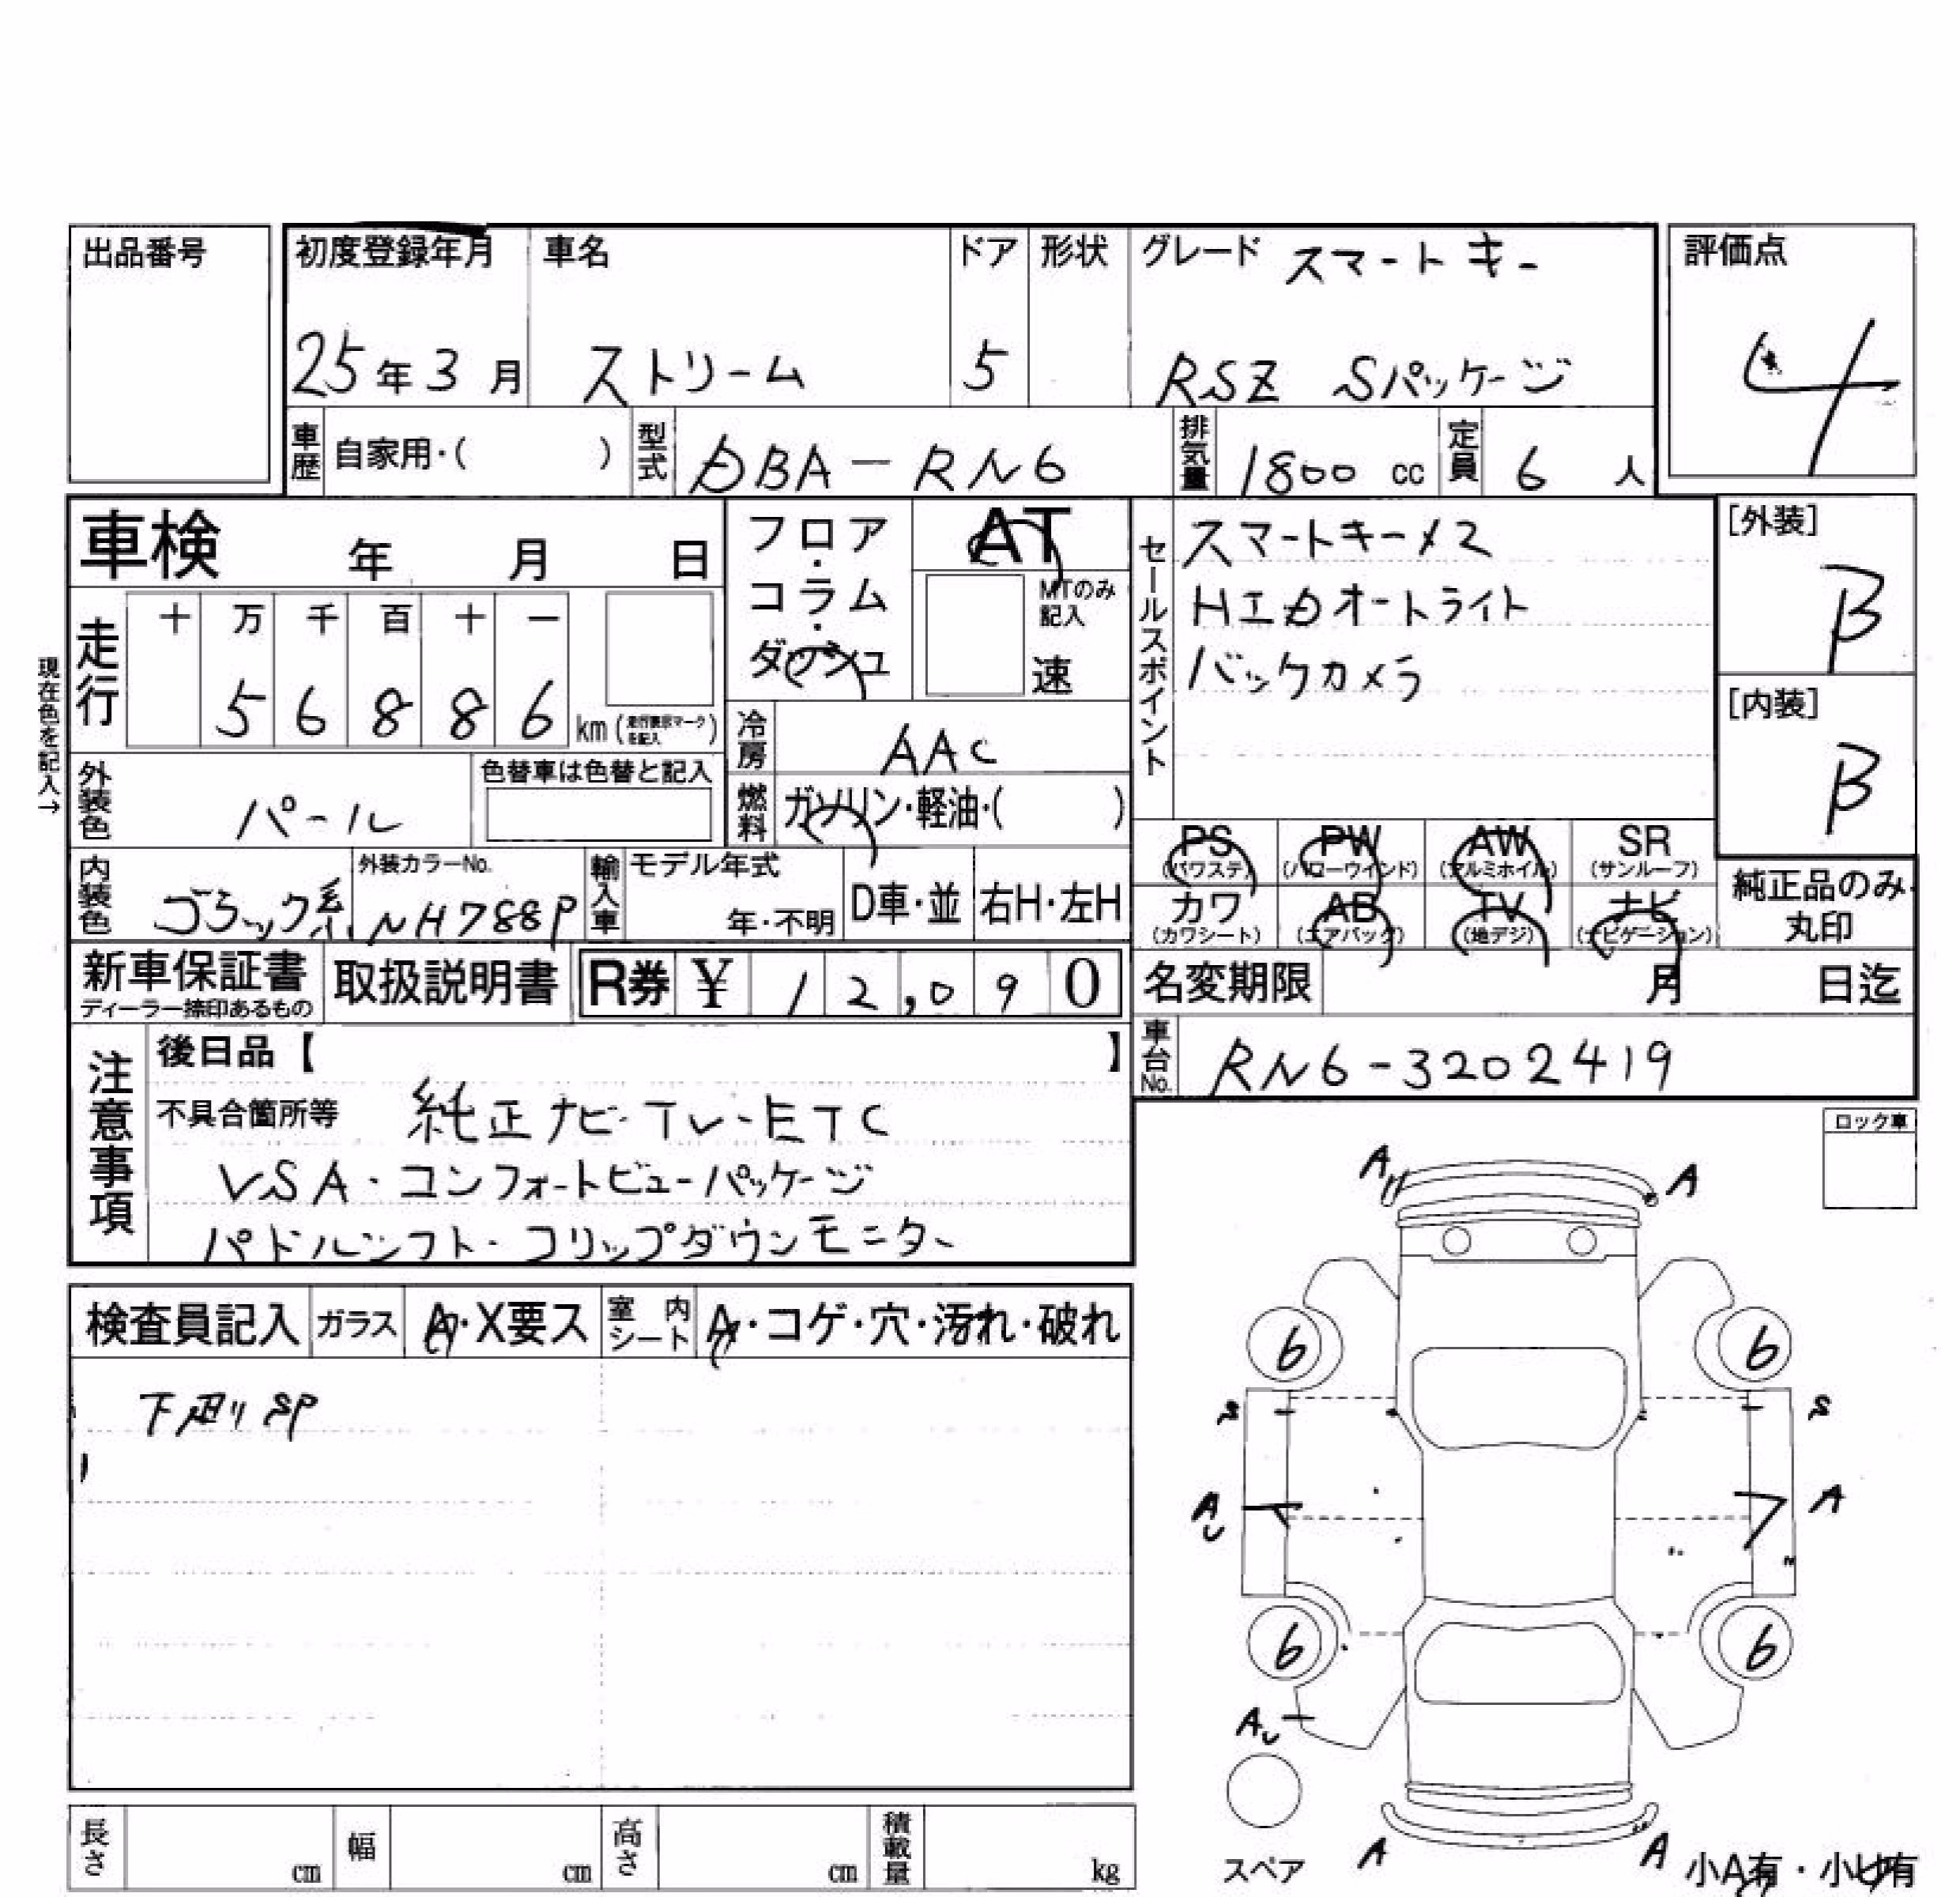 出品番号
初度登録年月 車名 ドア 形状 グレード スマートキー 評価点
25年3月 ストリーム 5 RSZ Sパッケージ 4
車歴 自家用・( ) 型式 DBA-RN6 排気量 1800 cc 定員 6 人
車検 年 月 日
フロア・コラム・ダッシュ
AT
MTのみ記入
速
セールスポイント
スマートキー×2
HIDオートライト
バックカメラ
[外装]
B
[内装]
B
現在色を記入→
走行 十 万 千 百 十 一
5 6 8 8 6 km (走行表示マークを記入)
冷房 AAC
外装色 パール 色替車は色替と記入
燃料 ガソリン・軽油・( )
PS (パワステ) PW (パワーウインド) AW (アルミホイル) SR (サンルーフ)
カワ (カワシート) AB (エアバッグ) TV (地デジ) ナビ (ナビゲーション)
純正品のみ丸印
内装色 ブラック系 外装カラーNo. NH788P 輸入車 モデル年式 年・不明 D車・並 右H・左H
新車保証書 ディーラー捺印あるもの 取扱説明書 R券 ¥ 12,090
名変期限 月 日迄
車台No. RN6-3202419
注意事項
後日品【 】
不具合箇所等 純正ナビ・TV・ETC
VSA・コンフォートビューパッケージ
パドルシフト・フリップダウンモニター
ロック車
検査員記入 ガラス A・X要ス 室内シート A・コゲ・穴・汚れ・破れ
下廻りSP
A A
6 6
S S
AU A
6 6
AU
スペア
A A
小A有・小U有
長さ cm 幅 cm 高さ cm 積載量 kg